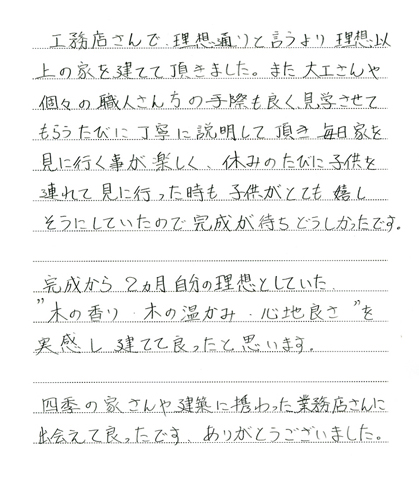 工務店さんで、理想通りと言うより 理想以
上の家を建てて頂きました。また 大工さんや
個々の職人さんちの手際も良く、見学させて
もらうたびに丁寧に説明して頂き 毎日家を
見に行く事が楽しく、休みのたびに子供を
連れて見に行った時も 子供がとても嬉し
そうにしていたので完成が待ちどうしかったです。
完成から 2ヵ月 自分の理想としていた
"木の香り・木の温かみ・心地良さ"を
実感し 建てて良ったと思います。
四季の家さんや建築に携わった業務店さんに
出会えて良ったです、ありがとうございました。